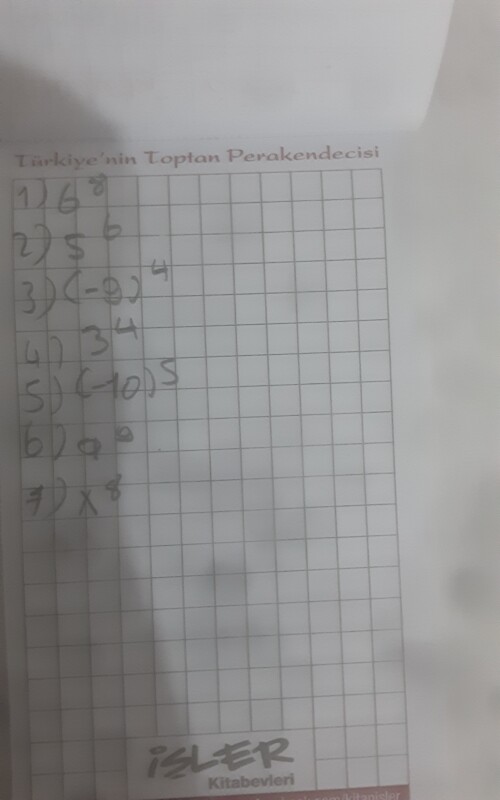 Türkiye'nin Toptan Perakendecisi
1) 6⁸
2) 5⁶
3) (-9)⁴
4) 3⁴
5) (-10)⁵
6)
7) x⁸
İŞLER
Kitabevleri